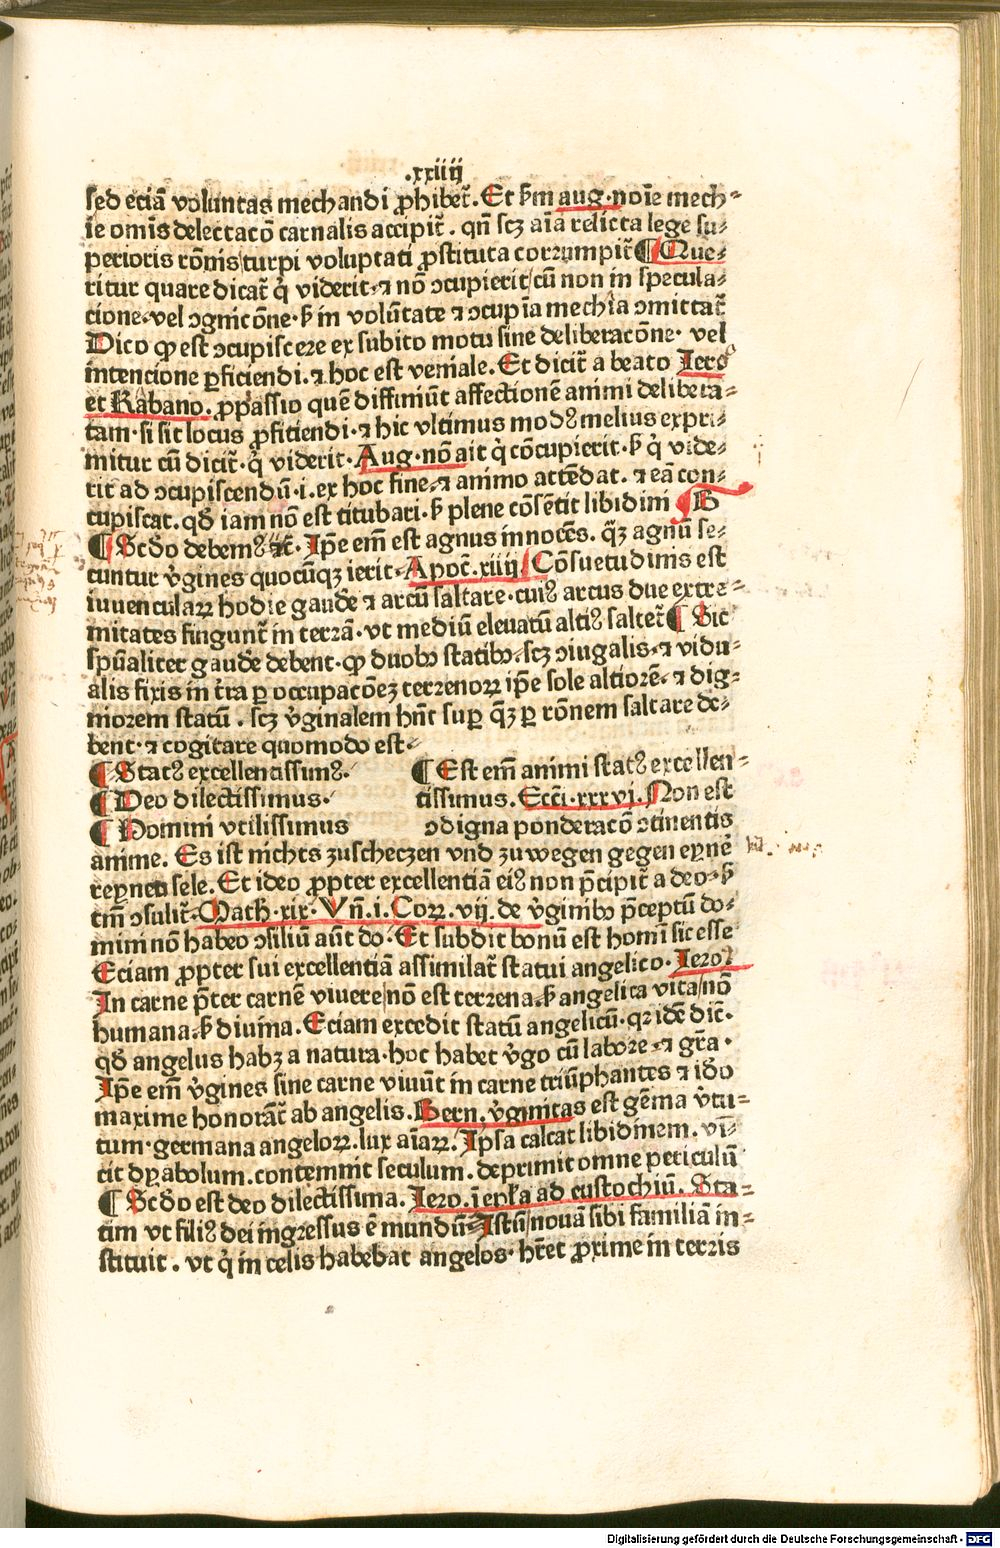 .xxiiij
sed eciā voluntas mechandi ꝓhibet᷑. Et ẜm aug. noīe mech⸗
ie omīs delectacō carnalis accipit᷑. qn̄ scꝫ aīa relicta lege su⸗
perioris rōnis turpi voluptati ꝓstituta corrumpit᷑ ¶ Que⸗
ritur quare dicat᷑ q̇ viderit ⁊ nō ↄcupierit / cū non in specula⸗
cione vel ↄgnicōne. ẜ in volūtate ⁊ ↄcupīa mechīa ↄmittat᷑
Dico ꝙ est ↄcupiscere ex subito motu sine deliberacōne. vel
intencione ꝑficiendi. ⁊ hoc est veniale. Et dicit᷑ a beato Iero
et Rabano. ꝓpassio quē diffiniūt affectionē animi delibera⸗
tam. si sit locus ꝓficiendi. ⁊ hic vltimus modꝰ melius expri⸗
mitur cū dicit᷑. q̇ viderit. Aug. nō ait q̇ cōcupierit. ẜ q̇ vide⸗
rit ad ↄcupiscendū. i. ex hoc fine ⁊ animo attēdat. ⁊ eā con⸗
cupiscat. qđ iam nō est titubari. ẜ plene cōsētit libidini ¶ B
¶ Scđo debemꝰ ⁊c̄. Ip̄e em̄ est agnus innocēs. q̄ꝫ agnū se⸗
cuntur v̇gines quocūqꝫ ierit. Apoc̄. xiiij. Cōsuetudinis est
iuuencularꝝ hodie gaude ⁊ arcū saltare. cuiꝰ arcus due extre⸗
mitates fingunt᷑ in terrā. vt mediū eleuatū altiꝰ saltet᷑ ¶ Sic
spūaliter gaud'e debent. ꝙ duobꝰ statibꝰ. scꝫ ↄiugalis ⁊ vidu⸗
alis fixis in t̄ra ꝑ occupacōeꝫ terrenoꝝ ip̄e sole altiorē ⁊ dig⸗
niorem statū. scꝫ v̇ginalem hn̄t suꝑ q̄ꝫ ꝑ rōnem saltare de⸗
bent. ⁊ cogitare quomodo est.
¶ Statꝰ excellentissimꝰ.
¶ Deo dilectissimus.
¶ Homini vtilissimus
¶ Est em̄ animi statꝰ excellen⸗
tissimus. Ecc̄i. xxxvj. Non est
ↄdigna ponderacō ↄtinentis
anime. Es ist nichts zuscheczen vnd zuwegen gegen eynē
reynen sele. Et ideo ꝓpter excellentiā eiꝰ non p̄cipit᷑ a deo. ẜ
tm̄ ↄsulit᷑. Math. xix. Vn̄. i. Corꝝ. vij. de v̇ginibꝰ p̄ceptū do⸗
mini nō habeo ↄsiliū aūt do. Et subdit bonū est homī sic esse
Eciam ꝓpter sui excellentiā assimilat᷑ statui angelico. Ieroꝰ
In carne p̄ter carnē viuere / nō est terrena. ẜ angelica vita / nō
humana. ẜ diuina. Eciam excedit statū angelicū. qꝛ idē dic̄.
qđ angelus habꝫ a natura. hoc habet v̇go cū labore ⁊ gr̄a.
Ip̄e em̄ v̇gines sine carne viuūt in carne triūphantes ⁊ iđo
maxime honorāt᷑ ab angelis. Bern. v̇ginitas est gēma v̇tu⸗
tum. germana angeloꝝ. lux aīaꝝ. Ipsa calcat libidinem. vi⸗
cit dyabolum. contemnit seculum. deprimit omne periculū
¶ Scđo est deo dilectissima. Iero. ī epl̄a ad eustochiū. Sta⸗
tim vt filiꝰ dei ingressus ē mundū. Istū / nouā sibi familiā in⸗
stituit. vt q̇ in celis habebat angelos. hēt ꝓxime in terris
Digitalisierung gefördert durch die Deutsche Forschungsgemeinschaft - DFG